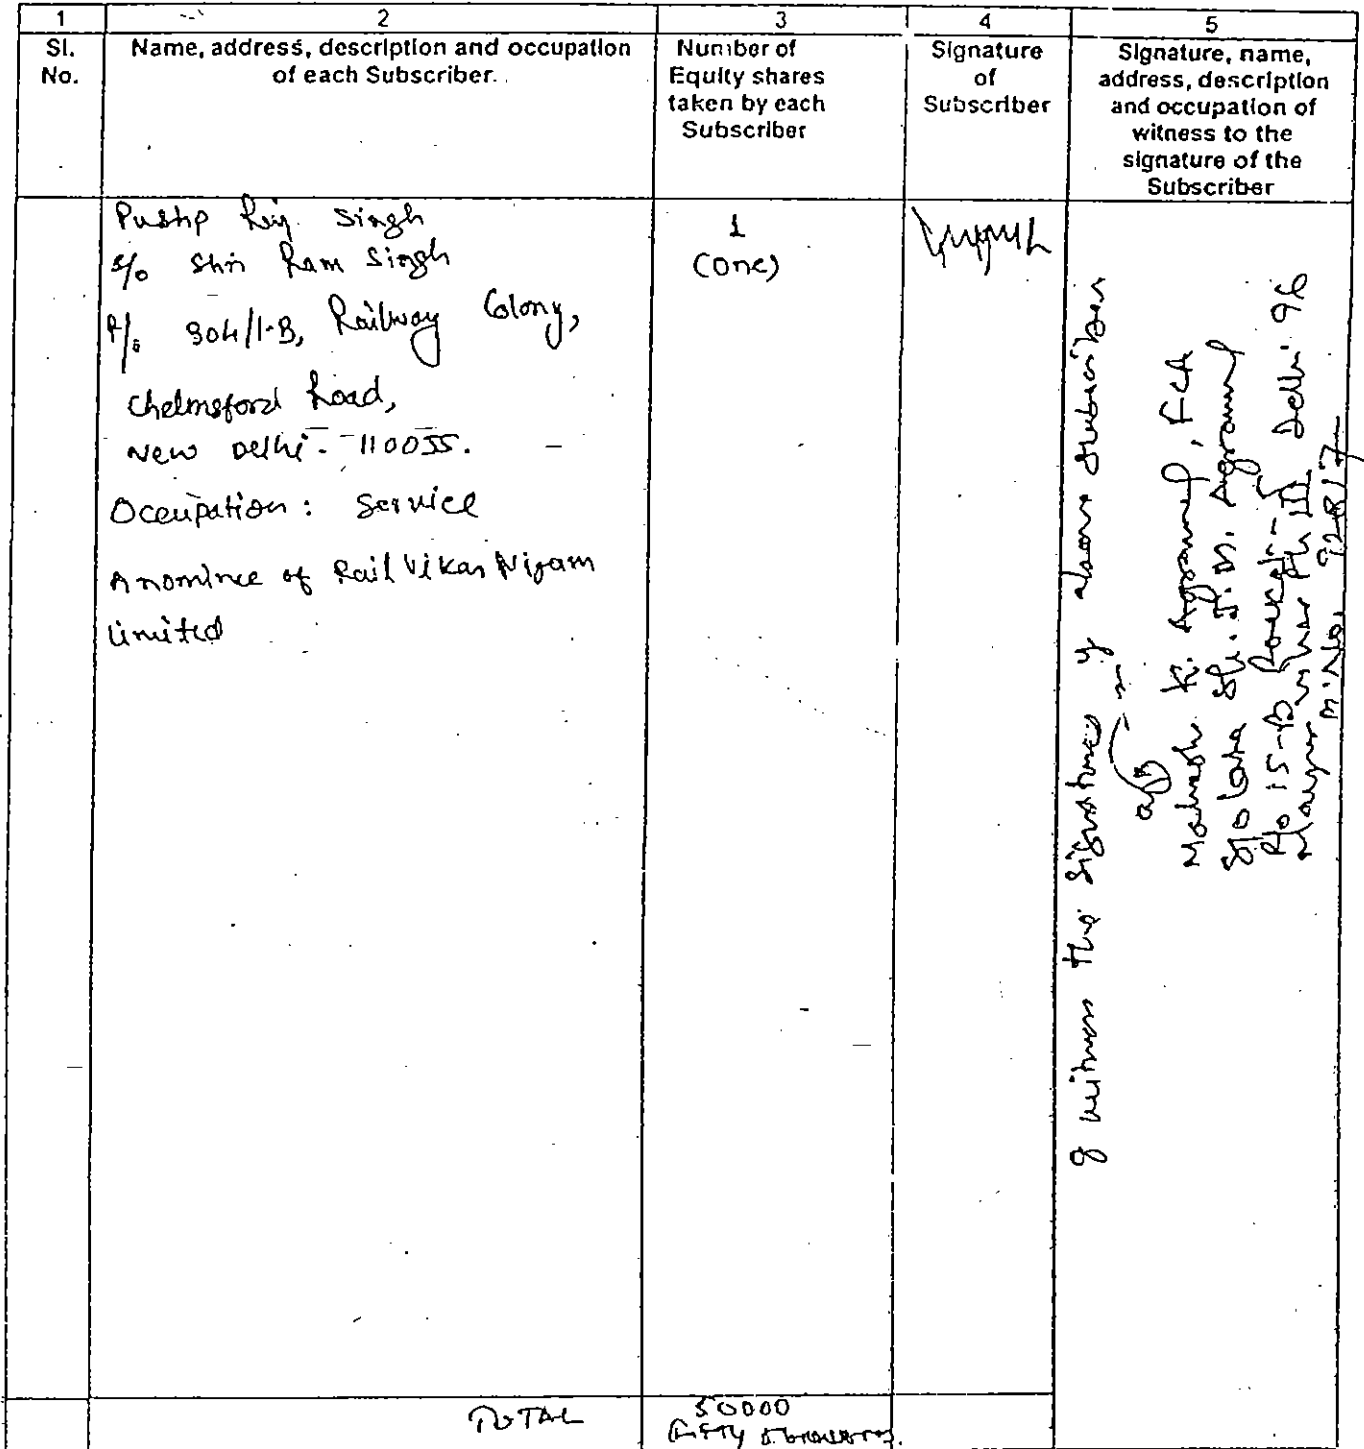 1
2
3
4
5
Sl.
No.
Name, address, description and occupation
of each Subscriber.
Number of
Equity shares
taken by each
Subscriber
Signature
of
Subscriber
Signature, name,
address, description
and occupation of
witness to the
signature of the
Subscriber
Pushp Raj Singh
S/o Shri Ram Singh
R/o 304/1-B, Railway Colony,
Chelmsford Road,
New Delhi - 110055.
Occupation: Service
A nominee of Rail Vikas Nigam
Limited
1
(One)
I witness the signatures of above subscriber
K. Agrawal, FCA
S/o Late Sh. J. M. Agrawal
R/o 15-B Pocket-
Mayur Vihar Ph III Delhi 96
M.No.
TOTAL
50000
(Fifty thousand)